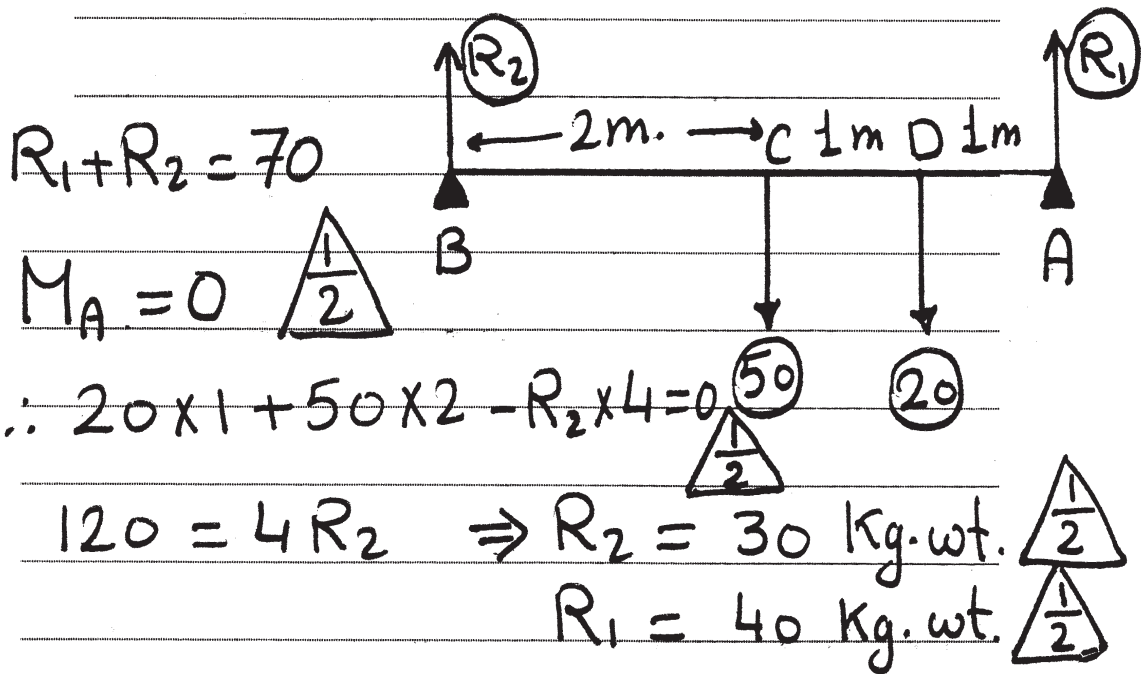 R₂ R₁
2m. C 1m D 1m
R₁+R₂=70
B A
M_A=0 1/2
50 20
∴ 20×1+50×2-R₂×4=0 1/2
120=4R₂ ⇒ R₂=30 Kg.wt. 1/2
R₁=40 Kg.wt. 1/2